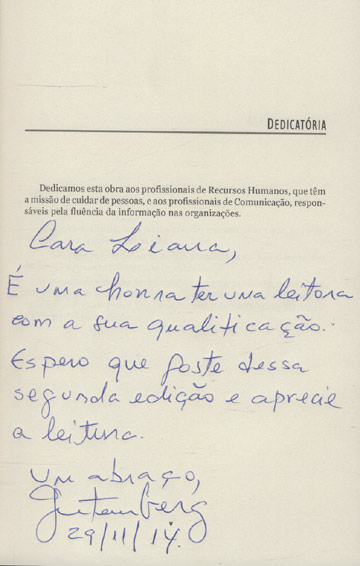 DEDICATÓRIA
Dedicamos esta obra aos profissionais de Recursos Humanos, que têm
a missão de cuidar de pessoas, e aos profissionais de Comunicação, respon-
sáveis pela fluência da informação nas organizações.
Cara Loiana,
É uma honra ter uma leitora
com a sua qualificação.
Espero que goste dessa
segunda edição e aprecie
a leitura.
Um abraço,
Gutemberg
29/11/14.